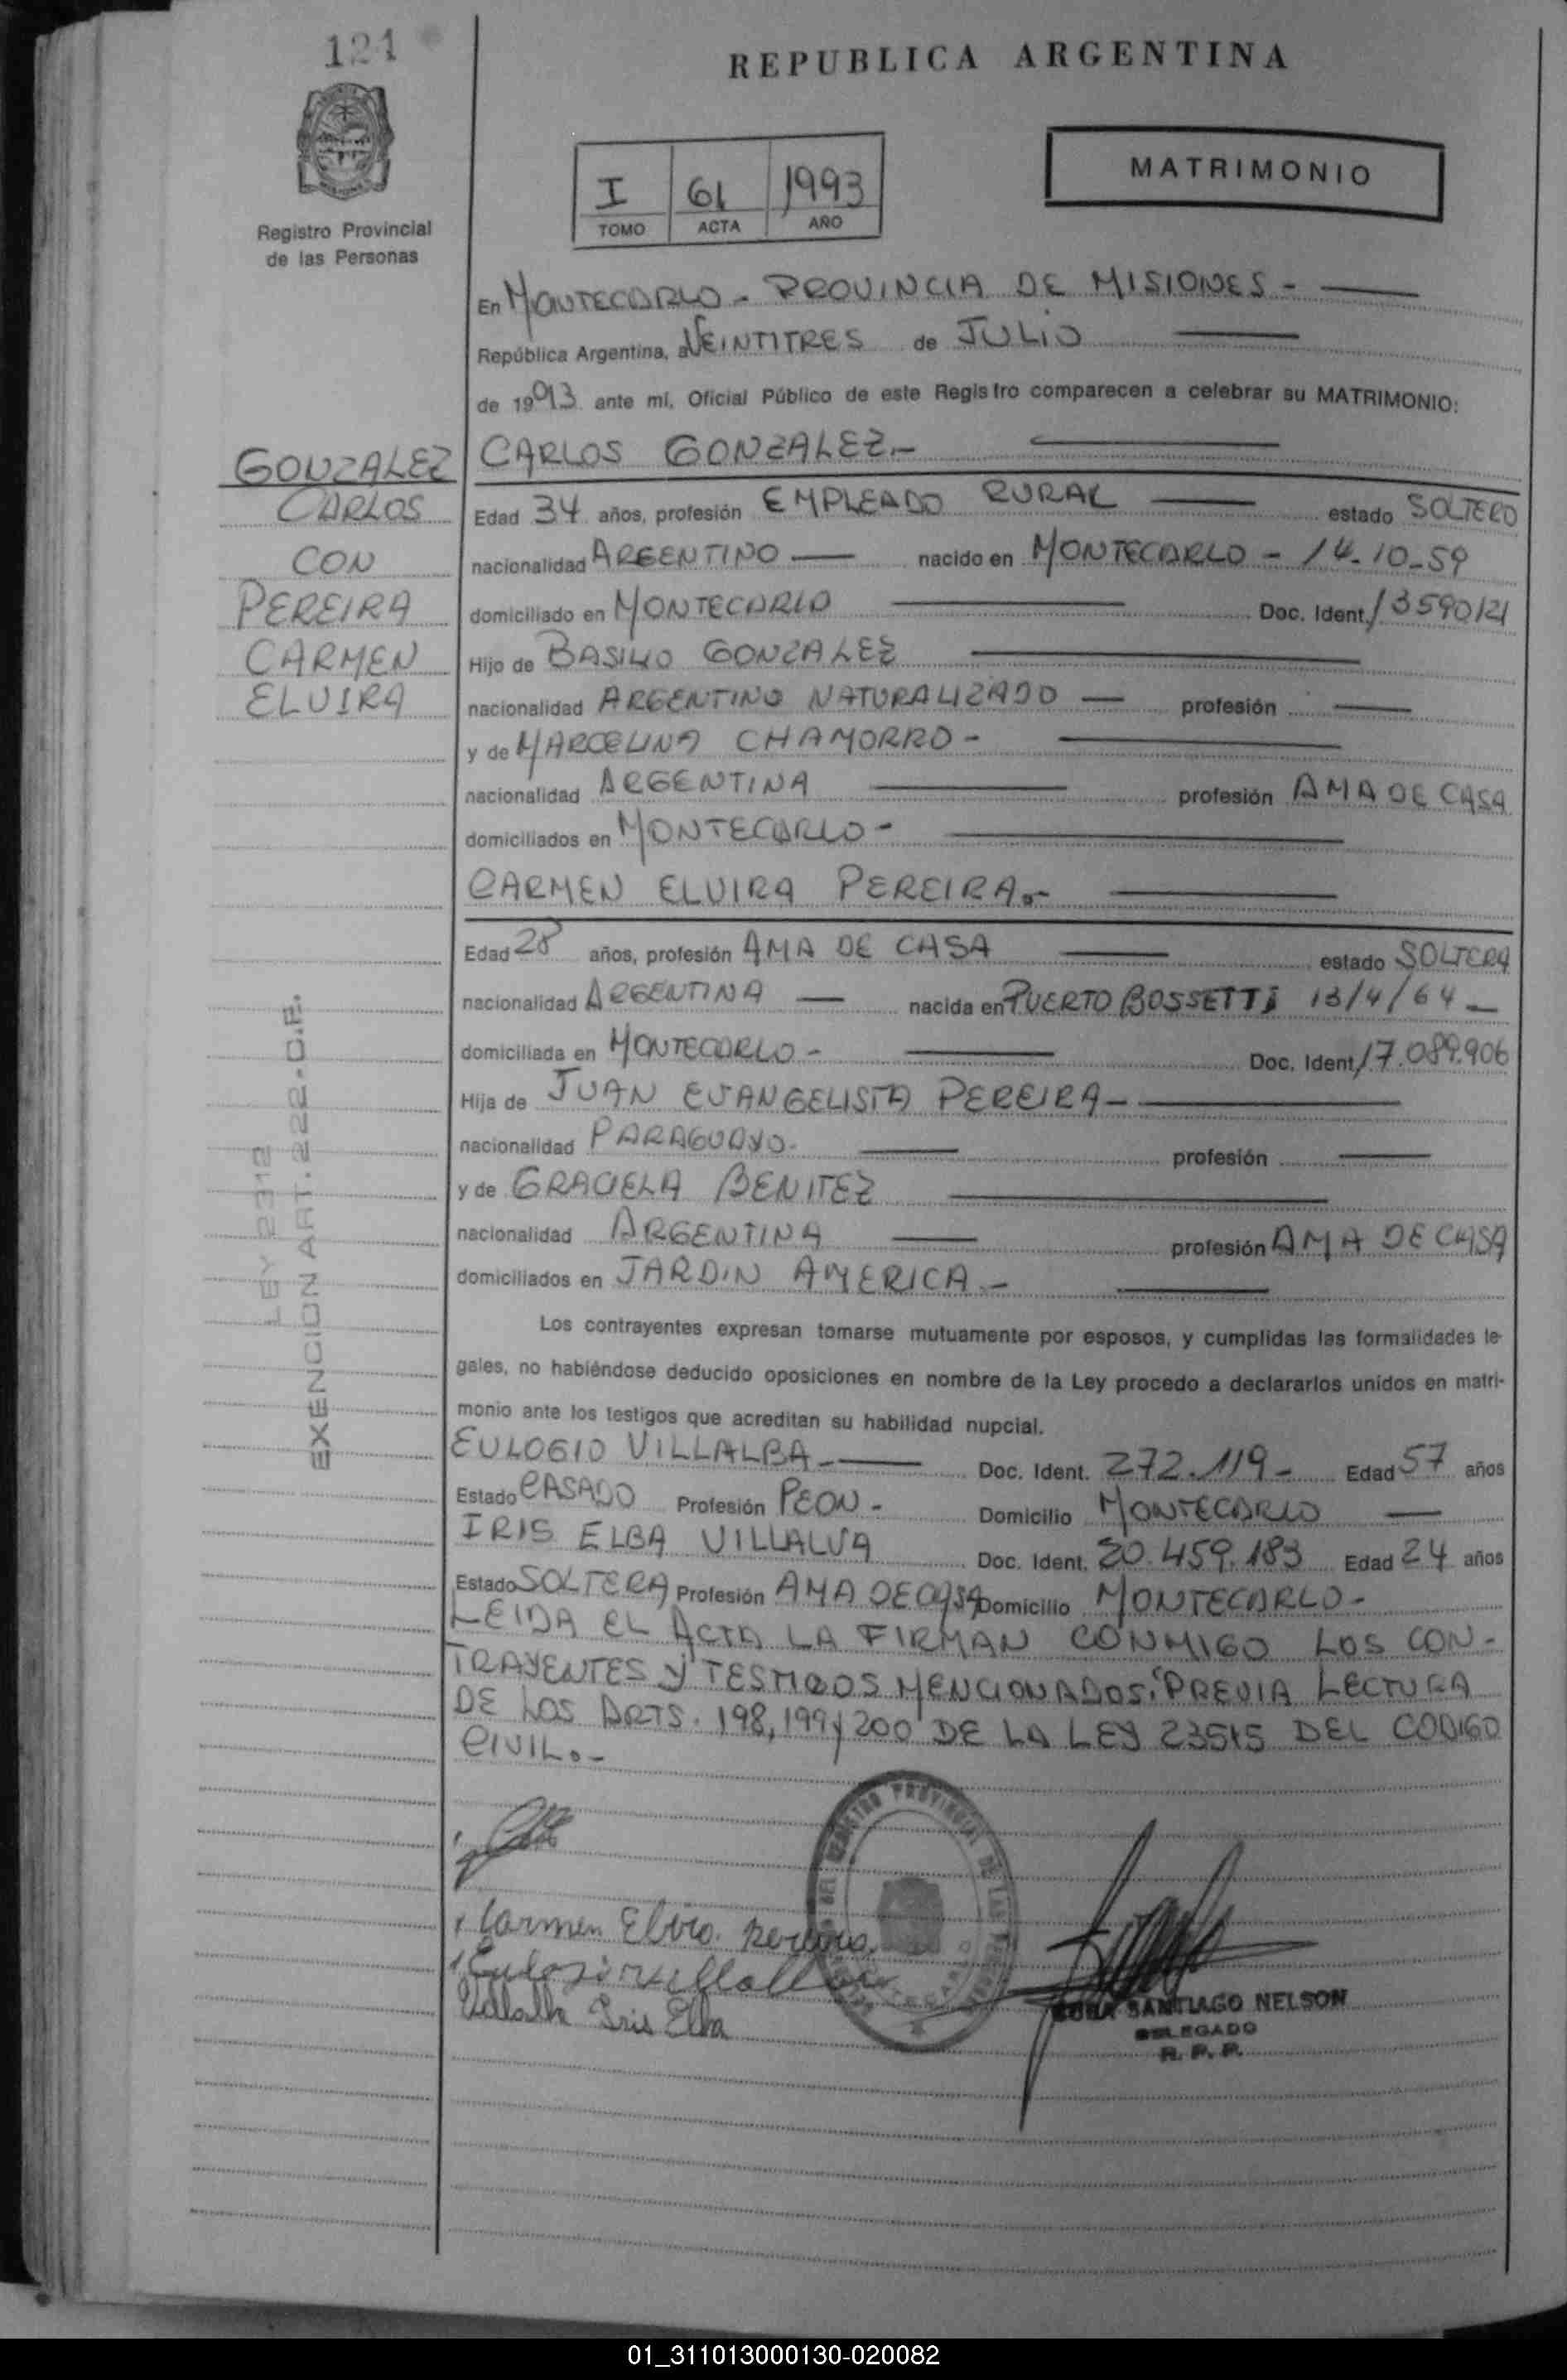 121
REPUBLICA ARGENTINA
MATRIMONIO
I 61 1993
TOMO ACTA AÑO
Registro Provincial
de las Personas
En MONTECARLO - PROVINCIA DE MISIONES -
República Argentina, a VEINTITRES de JULIO
de 1993 ante mí, Oficial Público de este Registro comparecen a celebrar su MATRIMONIO:
GONZALEZ
CARLOS
CON
PEREIRA
CARMEN
ELVIRA
CARLOS GONZALEZ.-
Edad 34 años, profesión EMPLEADO RURAL estado SOLTERO
nacionalidad ARGENTINO nacido en MONTECARLO - 14-10-59
domiciliado en MONTECARLO Doc. Ident. 13590121
Hijo de BASILIO GONZALEZ
nacionalidad ARGENTINO NATURALIZADO profesión
y de MARCELINA CHAMORRO -
nacionalidad ARGENTINA profesión AMA DE CASA
domiciliados en MONTECARLO -
CARMEN ELVIRA PEREIRA.-
Edad 28 años, profesión AMA DE CASA estado SOLTERA
nacionalidad ARGENTINA nacida en PUERTO BOSSETTI 13/4/64
domiciliada en MONTECARLO - Doc. Ident. 17.089.906
Hija de JUAN EVANGELISTA PEREIRA -
nacionalidad PARAGUAYO. profesión
y de GRACIELA BENITEZ
nacionalidad ARGENTINA profesión AMA DE CASA
domiciliados en JARDIN AMERICA.-
LEY 2312
EXENCION ART. 222.C.P.
Los contrayentes expresan tomarse mutuamente por esposos, y cumplidas las formalidades le-
gales, no habiéndose deducido oposiciones en nombre de la Ley procedo a declararlos unidos en matri-
monio ante los testigos que acreditan su habilidad nupcial.
EULOGIO VILLALBA.- Doc. Ident. 272.119 - Edad 57 años
Estado CASADO Profesión PEON - Domicilio MONTECARLO
IRIS ELBA VILLALVA Doc. Ident. 20.459.183 Edad 24 años
Estado SOLTERA Profesión AMA DE CASA Domicilio MONTECARLO -
LEIDA EL ACTA LA FIRMAN CONMIGO LOS CON-
TRAYENTES Y TESTIGOS MENCIONADOS. PREVIA LECTURA
DE LOS ARTS. 198, 199 y 200 DE LA LEY 23515 DEL CODIGO
CIVIL.-
Carmen Elvira Pereira
Eulogio Villalba
Villalba Iris Elba
SANTIAGO NELSON
DELEGADO
R. P. P.
01_311013000130-020082